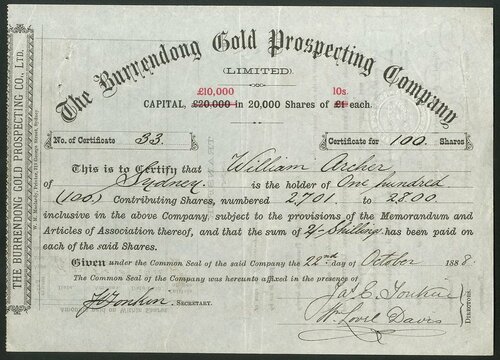 The Burrendong Gold Prospecting Company
(LIMITED).
£10,000 10s.
CAPITAL, £20,000 in 20,000 Shares of £1 each.
No. of Certificate 33. Certificate for 100. Shares
This is to Certify that William Archer
of Sydney. is the holder of One hundred
(100.) Contributing Shares, numbered 2,701. to 2800.
inclusive in the above Company, subject to the provisions of the Memorandum and
Articles of Association thereof, and that the sum of 2/- Shilling. has been paid on
each of the said Shares.
Given under the Common Seal of the said Company the 22nd day of October 1888.
The Common Seal of the Company was hereunto affixed in the presence of
SECRETARY.
Jas E.
Wm Lovel Davis
DIRECTORS.
THE BURRENDONG GOLD PROSPECTING CO., LTD.